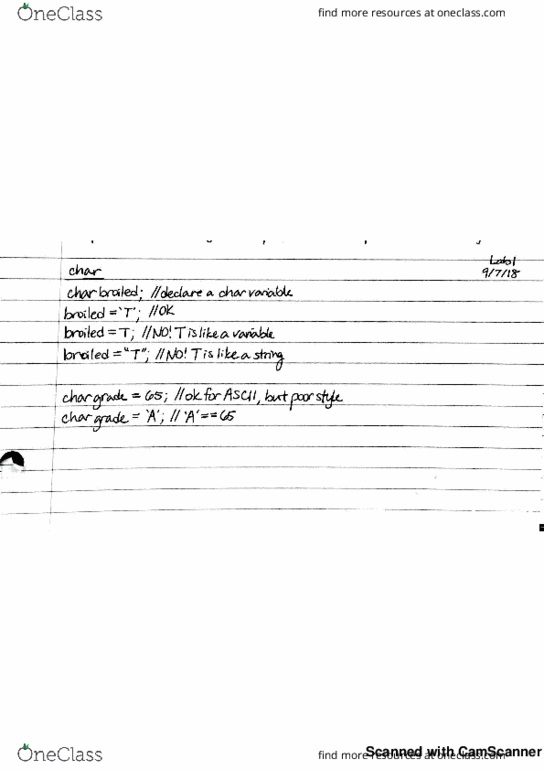 OneClass find more resources at oneclass.com
Lab 1
char 9/7/18
char broiled; //declare a char variable
broiled = 'T'; //OK
broiled = T; //NO! T is like a variable
broiled = "T"; //NO! T is like a string
char grade = 65; //ok for ASCII, but poor style
char grade = 'A'; // 'A' == 65
OneClass find more resources at oneclass.com
Scanned with CamScanner